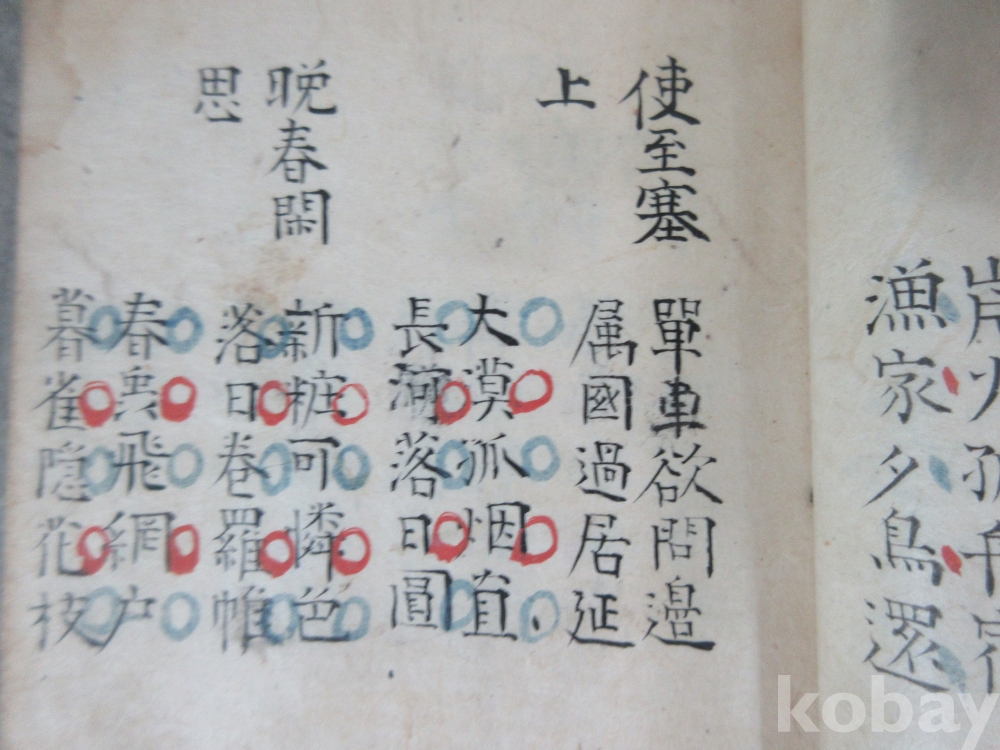 岸火孤
漁家夕鳥還
使至塞
上
單車欲問邊
属國過居延
大漠孤烟直
長河落日圓
晩春閑
思
新粧可憐色
落日卷羅帷
春䖝飛網户
暮雀隠花枝
kobay